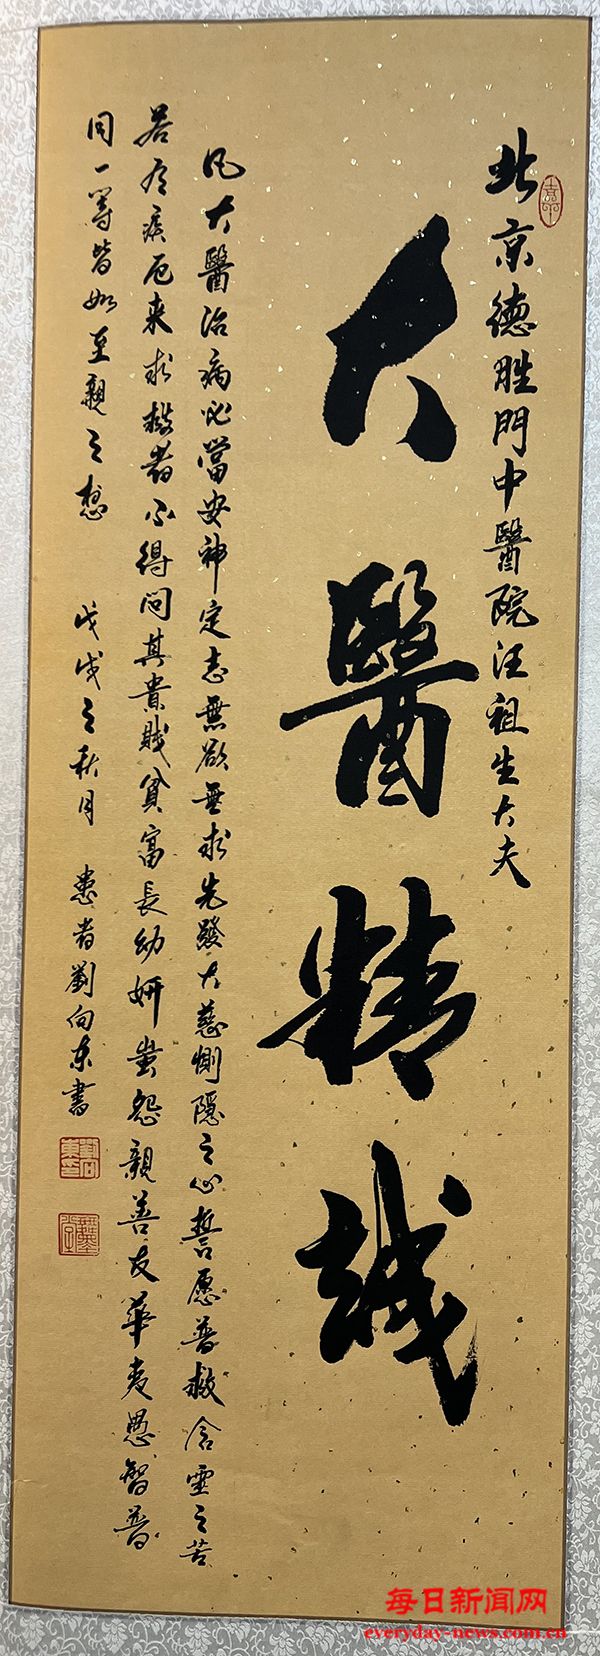 北京德胜門中醫院汪祖生大夫
大醫精誠
凡大醫治病必當安神定志無欲無求先發大慈惻隱之心誓愿普救含靈之苦
若有疾厄来求救者不得問其貴賤貧富長幼妍蚩怨親善友華夷愚智普
同一等皆如至親之想 戊戌之秋月 患者劉向东書
每日新闻网
everyday-news.com.cn